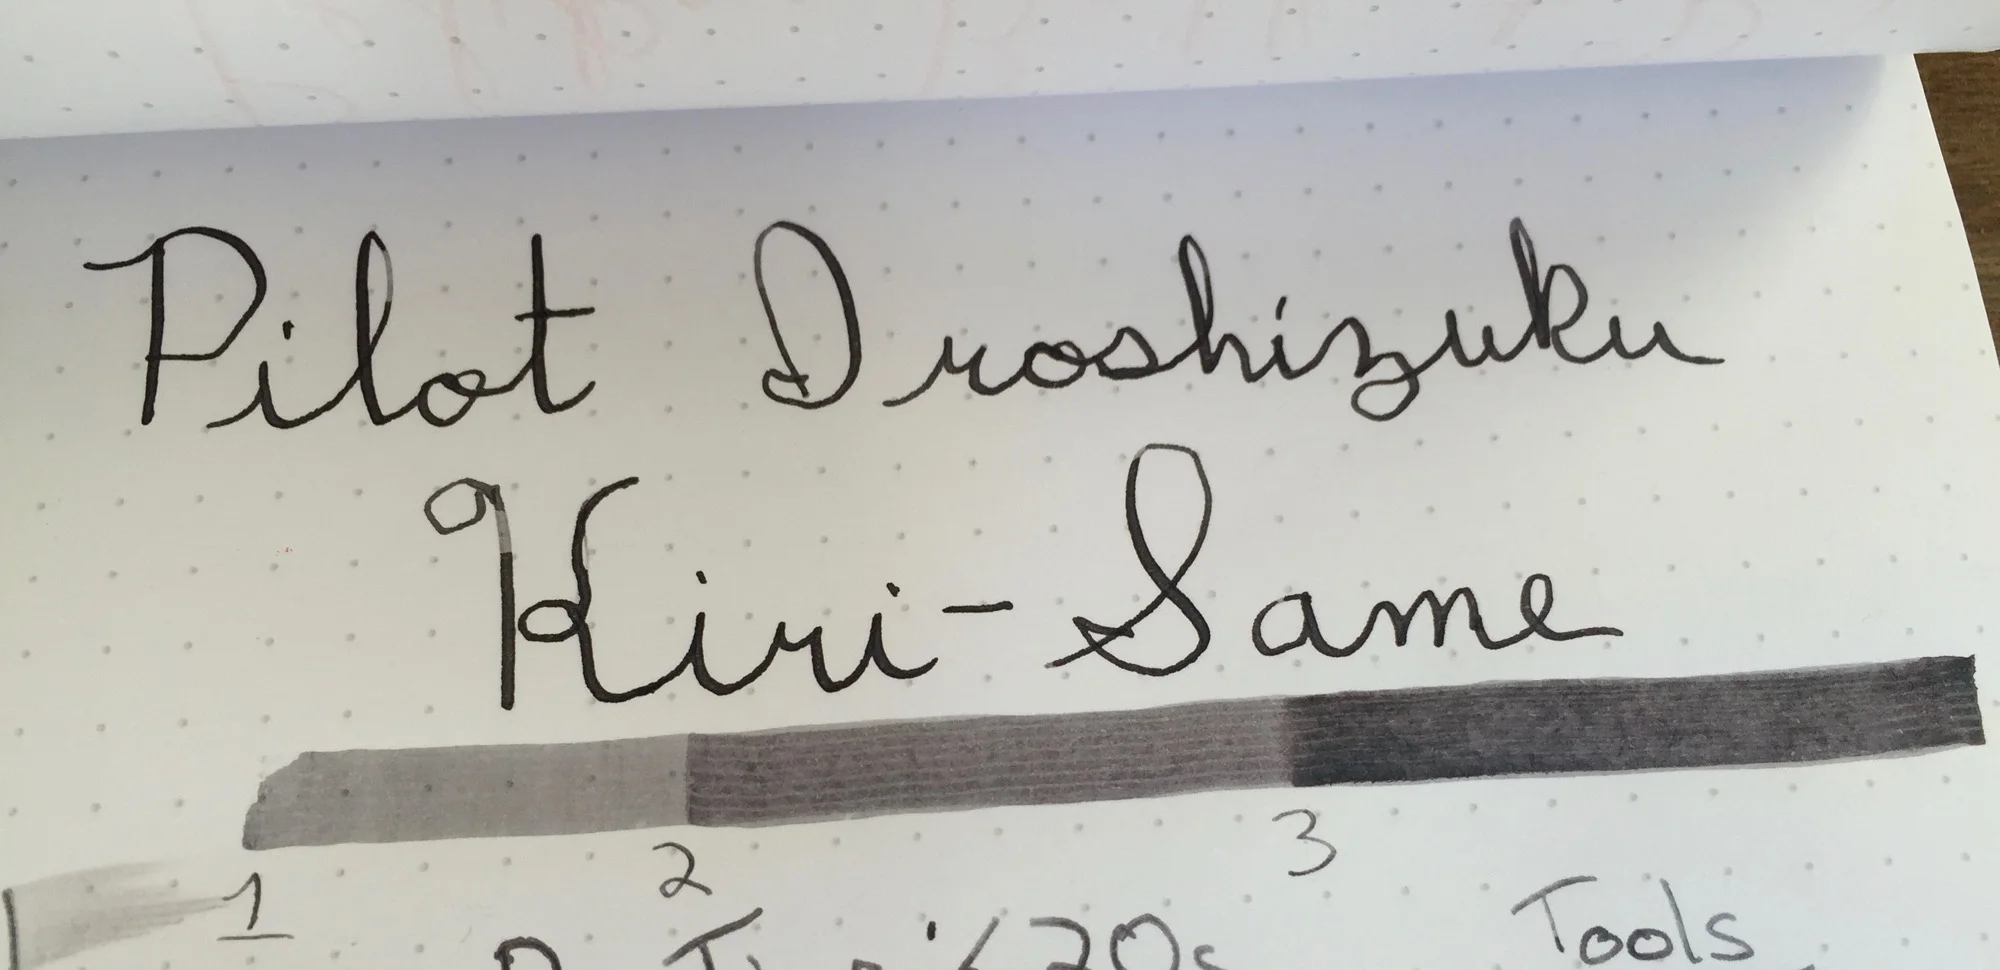 Pilot Iroshizuku
Kiri-Same
1 2 3
Tools